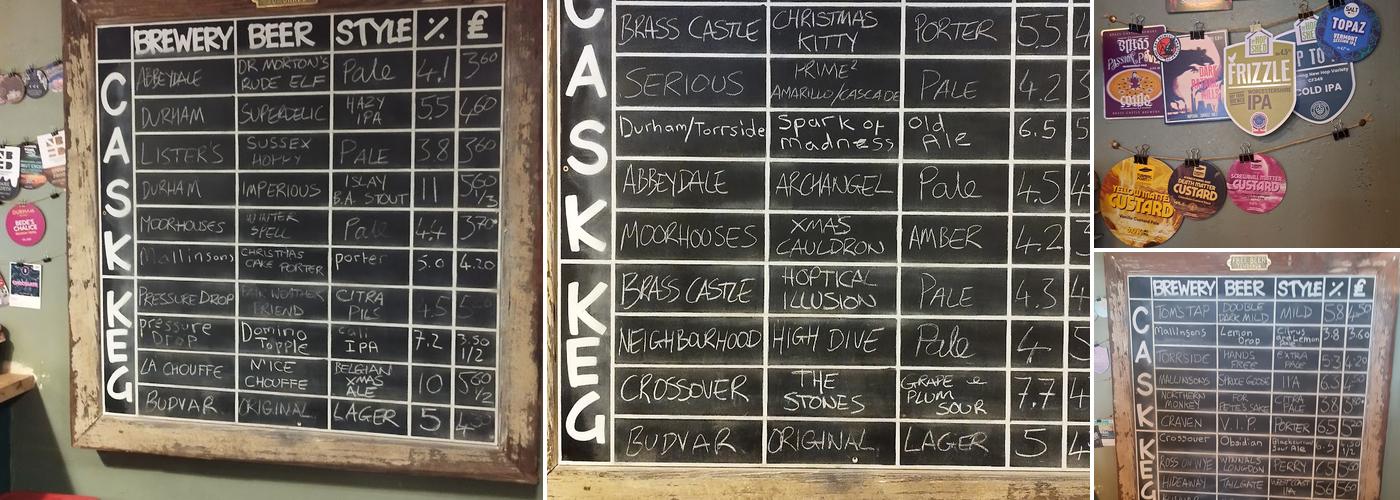 BREWERY BEER STYLE % £
ABBEYDALE DR MORTON'S RUDE ELF Pale 4.1 3⁶⁰
DURHAM SUPERDELIC HAZY IPA 5.5 4⁶⁰
LISTER'S SUSSEX HOPPY PALE 3.8 3⁶⁰
DURHAM IMPERIOUS ISLAY B.A. STOUT 11 5⁶⁰ 1/3
MOORHOUSES WINTER SPELL Pale 4.4 3⁷⁰
Mallinsons CHRISTMAS CAKE PORTER porter 5.0 4.20
PRESSURE DROP FAIR WEATHER FRIEND CITRA PILS 4.5
pressure Drop Domino Topple cali IPA 7.2 3.50 1/2
LA CHOUFFE N'ICE CHOUFFE BELGIAN XMAS ALE 10 5⁶⁰ 1/2
BUDVAR ORIGINAL LAGER 5
CASK
KEG
DURHAM
BEDE'S CHALICE
BRASS CASTLE CHRISTMAS KITTY PORTER 5.5 4
SERIOUS PRIME² AMARILLO/CASCADE PALE 4.2 3
Durham/Torrside Spark of madness Old Ale 6.5 5
ABBEYDALE ARCHANGEL Pale 4.5 4
MOORHOUSES XMAS CAULDRON AMBER 4.2 3
BRASS CASTLE HOPTICAL ILLUSION PALE 4.3 4
NEIGHBOURHOOD HIGH DIVE Pale 4 5
CROSSOVER THE STONES GRAPE & PLUM SOUR 7.7 4
BUDVAR ORIGINAL LAGER 5 4
CASK
KEG
SALT
TOPAZ
VERMONT
HOP SHED
FRIZZLE
WORCESTERSHIRE
IPA
COLD IPA
YELLOW MATTER
CUSTARD
DEATH MATTER
CUSTARD
SCREWBALL MATTER
CUSTARD
FREE BEER
BREWERY BEER STYLE % £
TOM'S TAP DOUBLE DARK MILD MILD 5.8 4⁵⁰
Mallinsons Lemon Drop Citrus and Lemon Pale 3.8 3.60
TORRSIDE HANDS FREE EXTRA PALE 5.3 4.20
MALLINSONS SPRUCE GOOSE IPA 6.5
NORTHERN MONKEY FOR PETE'S SAKE CITRA PALE 3.8 3⁸⁰
CRAVEN V.I.P. PORTER 6.5 5²⁰
Crossover Obsidian Blackcurrant Sour Ale
ROSS ON WYE WINNAL'S LONGDON PERRY 7.5 5⁰⁰
HIDEAWAY TAILGATE WEST COAST IPA 5.6
CASK
KEG